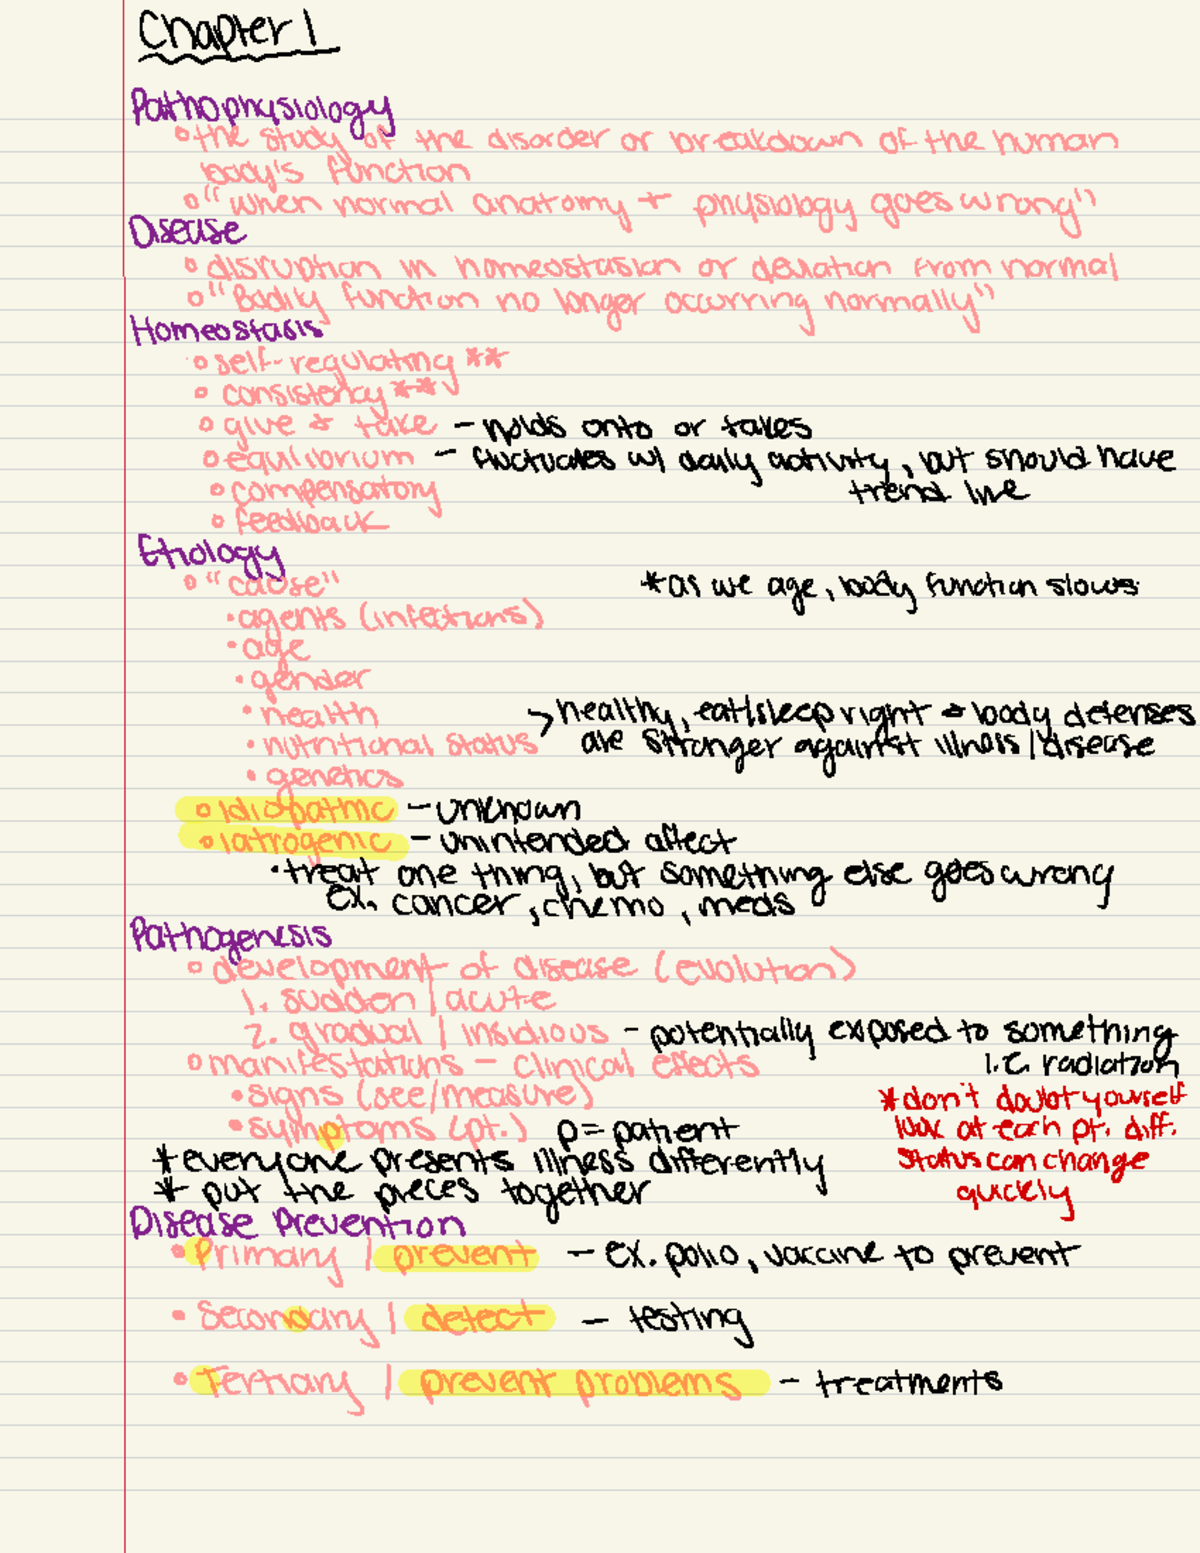 Chapter 1
Pathophysiology
◦ the study of the disorder or breakdown of the human
body's function
◦ "when normal anatomy + physiology goes wrong"
Disease
◦ disruption in homeostasion or deviation from normal
◦ "Bodily function no longer occurring normally"
Homeostasis
◦ self-regulating **
◦ consistency **
◦ give & take - holds onto or takes
◦ equilibrium - fluctuates w/ daily activity, but should have
trend line
◦ compensatory
◦ feedback
Etiology
◦ "cause" *as we age, body function slows
• agents (infections)
• age
• gender
• health > healthy, eat/sleep right → body defenses
• nutritional status are stronger against illness/disease
• genetics
◦ Idiopathic - unknown
◦ Iatrogenic - unintended affect
• treat one thing, but something else goes wrong
Ex. cancer, chemo, meds
Pathogenesis
◦ development of disease (evolution)
1. sudden / acute
2. gradual / insidious - potentially exposed to something
i.e. radiation
◦ manifestations - clinical effects
• signs (see/measure) *don't doubt yourself
• symptoms (pt.) p = patient look at each pt. diff.
*everyone presents illness differently status can change
* put the pieces together quickly
Disease Prevention
• Primary / prevent - ex. polio, vaccine to prevent
• Secondary / detect - testing
• Tertiary / prevent problems - treatments